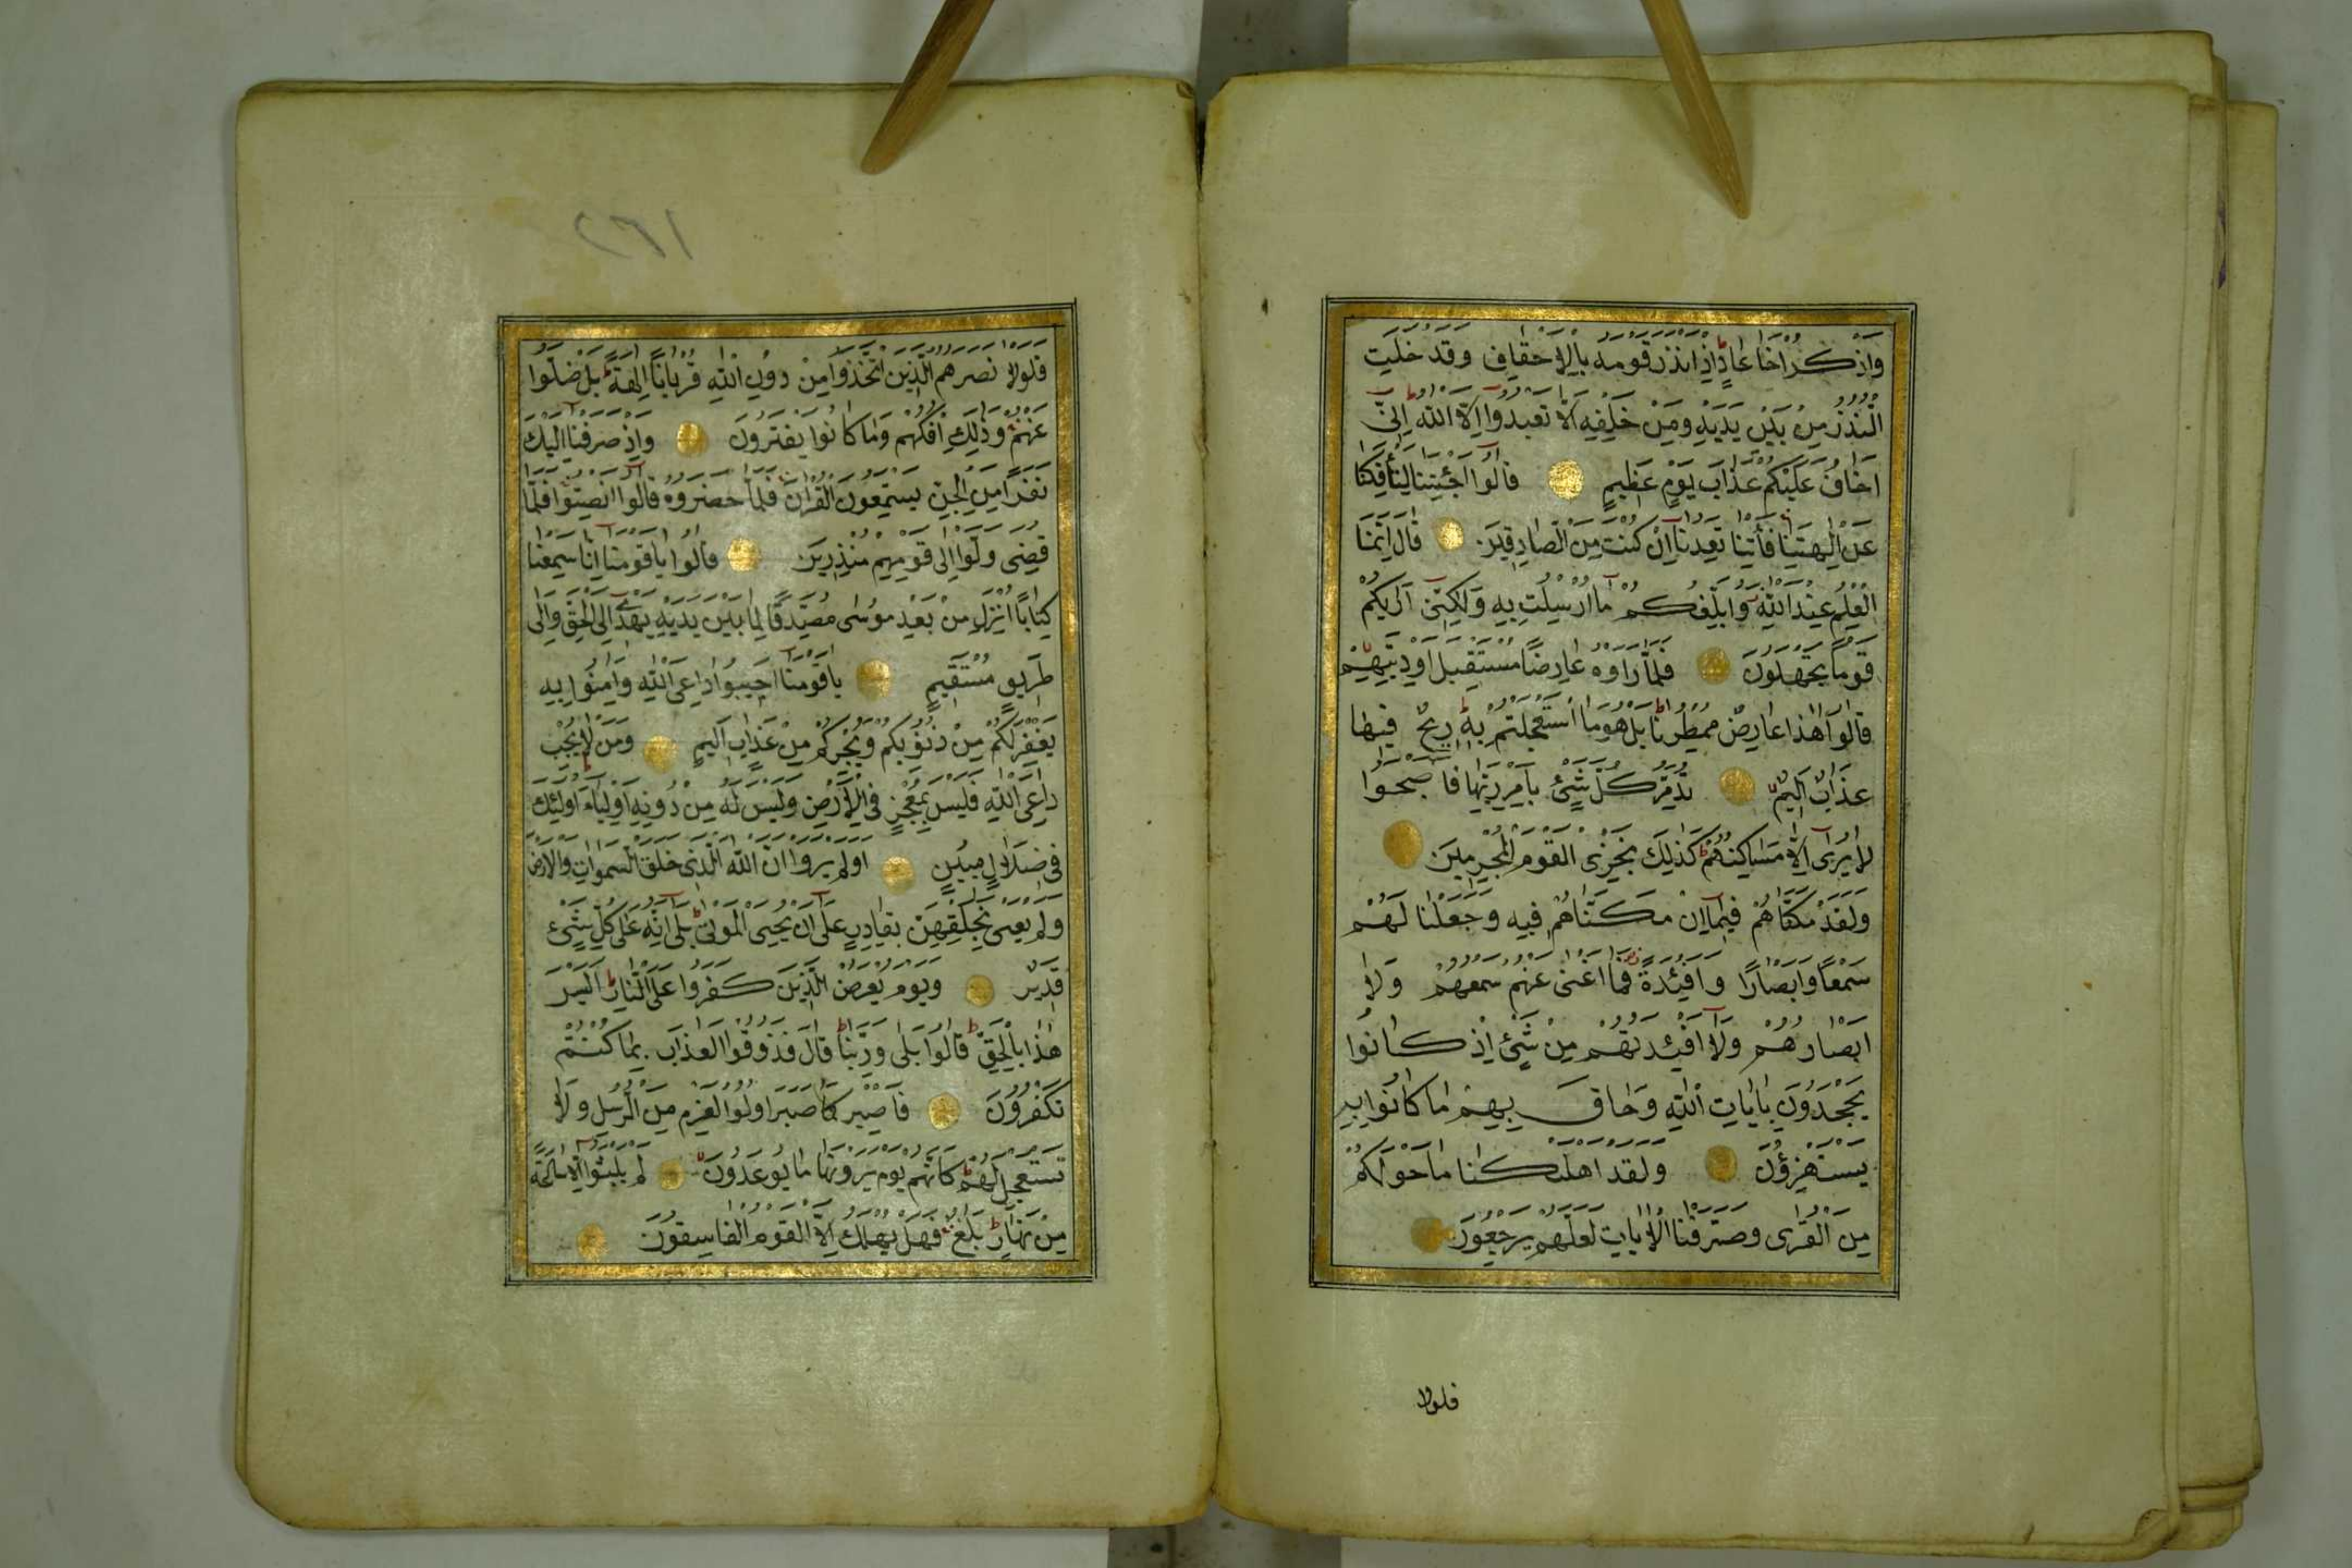 واذكر اخا عاد اذ انذر قومه بالاحقاف وقد خلت
النذر من بين يديه ومن خلفه الا تعبدوا الا الله انى
اخاف عليكم عذاب يوم عظيم قالوا اجئتنا لتأفكنا
عن الهتنا فأتنا تعدنا ان كنت من الصادقين قال انما
العلم عند الله وابلغكم ما ارسلت به ولكنى اريكم
قوما تجهلون فلما راوه عارضا مستقبل اوديتهم
قالوا هذا عارض ممطرنا بل هو ما استعجلتم به ريح فيها
عذاب اليم تدمر كل شئ بأمر ربها فاصبحوا
لا يرى الا مساكنهم كذلك نجزى القوم المجرمين
ولقد مكناهم فيما ان مكناهم فيه وجعلنا لهم
سمعا وابصارا وافئدة فما اغنى عنهم سمعهم ولا
ابصارهم ولا افئدتهم من شئ اذ كانوا
يجحدون بايات الله وحاق بهم ما كانوا به
يستهزؤن ولقد اهلكنا ما حولكم
من القرى وصرفنا الايات لعلهم يرجعون
فلولا
٢٦١
فلولا نصرهم الذين اتخذوا من دون الله قربانا الهة بل ضلوا
عنهم وذلك افكهم وما كانوا يفترون واذ صرفنا اليك
نفرا من الجن يستمعون القران فلما حضروه قالوا انصتوا فلما
قضى ولوا الى قومهم منذرين قالوا يا قومنا انا سمعنا
كتابا انزل من بعد موسى مصدقا لما بين يديه يهدى الى الحق والى
طريق مستقيم يا قومنا اجيبوا داعى الله وامنوا به
يغفر لكم من ذنوبكم ويجركم من عذاب اليم ومن لا يجب
داعى الله فليس بمعجز فى الارض وليس له من دونه اولياء اولئك
فى ضلال مبين اولم يروا ان الله الذى خلق السموات والارض
ولم يعى بخلقهن بقادر على ان يحيى الموتى بلى انه على كل شئ
قدير ويوم يعرض الذين كفروا على النار اليس
هذا بالحق قالوا بلى وربنا قال فذوقوا العذاب بما كنتم
تكفرون فاصبر كما صبر اولوا العزم من الرسل ولا
تستعجل لهم كانهم يوم يرونها ما يوعدون لم يلبثوا الا ساعة
من نهار بلاغ فهل يهلك الا القوم الفاسقون